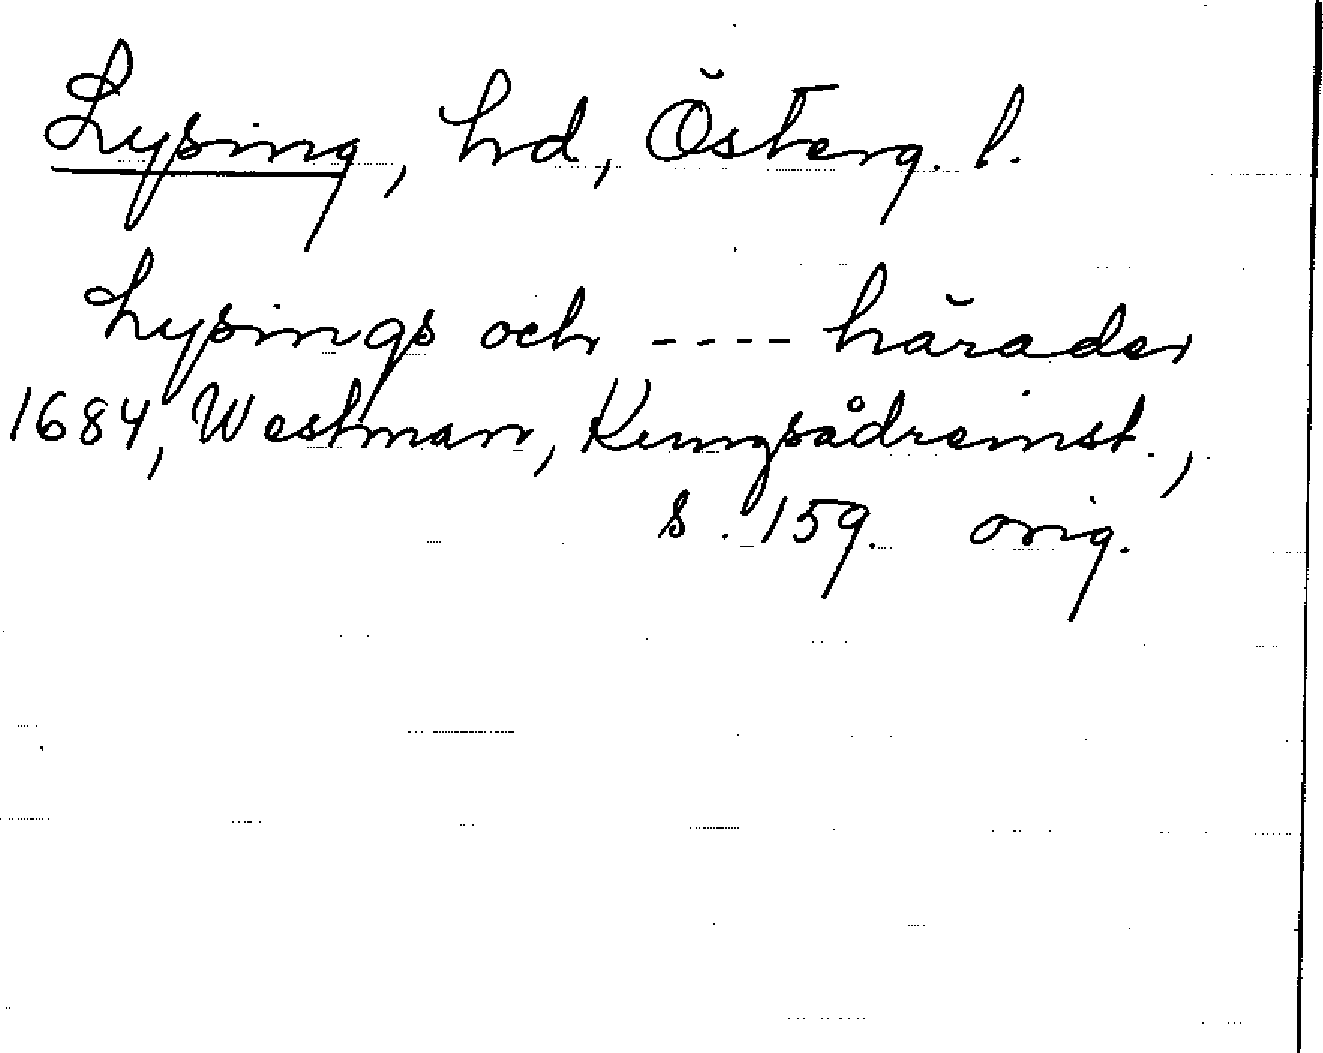 Lysing, hd, Österg. l.
Lysings och ---- härader
1684, Westman, Kungsådreinst.,
s. 159. orig.